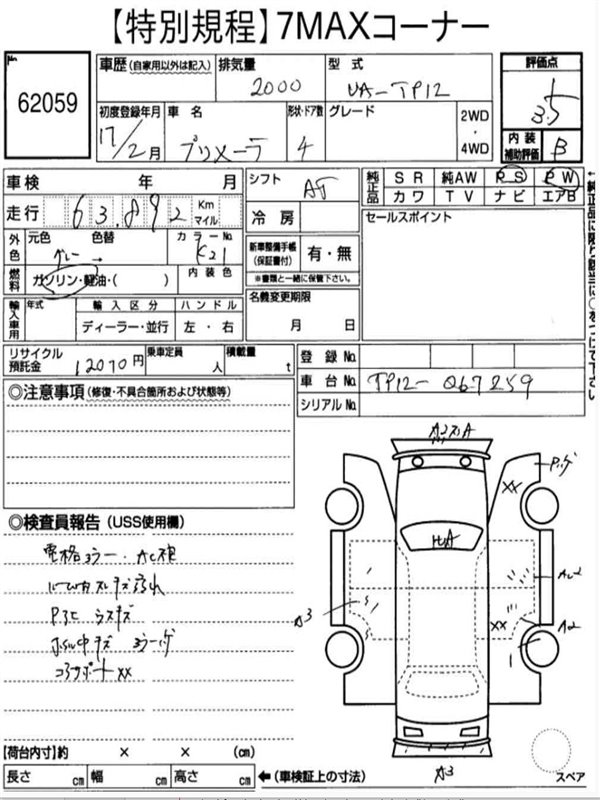 【特別規程】7MAXコーナー
No.
62059
車歴(自家用以外は記入) 排気量 2000 型式 UA-TP12
評価点 3.5
初度登録年月 17/2月 車名 プリメーラ 形状・ドア数 4 グレード 2WD・4WD
内装補助評価 B
車検 年 月
シフト AT
純正品 SR 純AW PS PW
カワ TV ナビ エアB
走行 63,892 Kmマイル
冷房
セールスポイント
外色 元色 色替 カラーNo.
グレー → K21
新車整備手帳(保証書付) 有・無
※書類と一緒に保管下さい。
燃料 ガソリン・軽油・( ) 内装色
名義変更期限
月 日
輸入車用 年式 輸入区分 ハンドル
ディーラー・並行 左・右
←純正品に限り該当に○をつけて下さい
リサイクル預託金 12070円 乗車定員 人 積載量 t
登録No.
車台No. TP12-067259
シリアルNo.
◎注意事項(修復・不具合箇所および状態等)
◎検査員報告(USS使用欄)
電格ミラー・AC
キズ
P
キズ
コアサポートXX
A
Pハゲ
XX
A2
XX
A2
A3
A3
【荷台内寸】約 × × (cm)
長さ cm 幅 cm 高さ cm ←(車検証上の寸法)
スペア